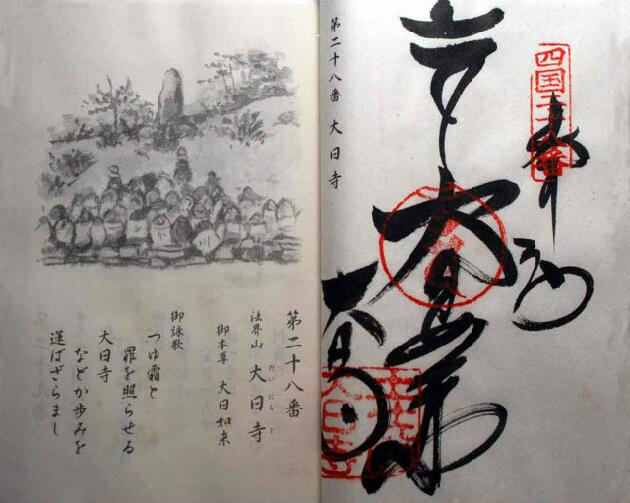 四国二十八番
奉納
大日如来
大日寺
第二十八番 大日寺
第二十八番
法界山 大日寺
だいにちじ
御本尊 大日如来
御詠歌
つゆ霜と
罪を照らせる
大日寺
などか歩みを
運ばざらまし